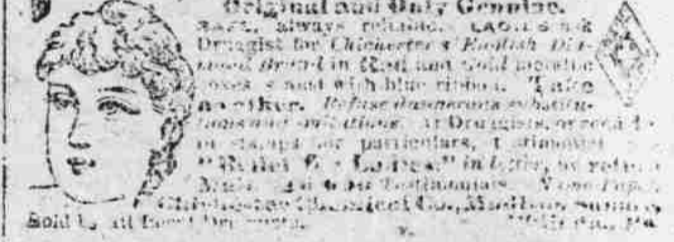 Original and Only Genuine.
SAFE, always reliable. LADIES ask
Druggist for Chichester's English Dia-
mond Brand in Red and Gold metallic
boxes, sealed with blue ribbon. Take
no other. Refuse dangerous substitu-
tions and imitations. At Druggists, or send 4c.
in stamps for particulars, testimonials
"Relief for Ladies," in letter, by return
Mail. Testimonials. Name Paper.
Chichester Chemical Co., Madison Square,
Sold by all Local Druggists. Pa.